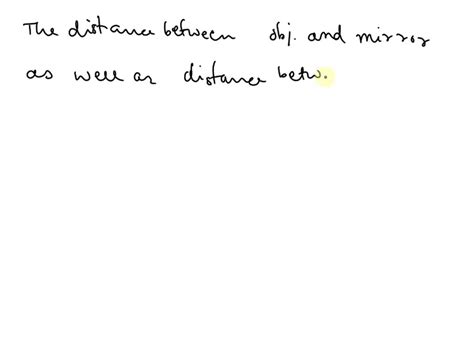 The distance between obj. and mirror
as well as distance betw.